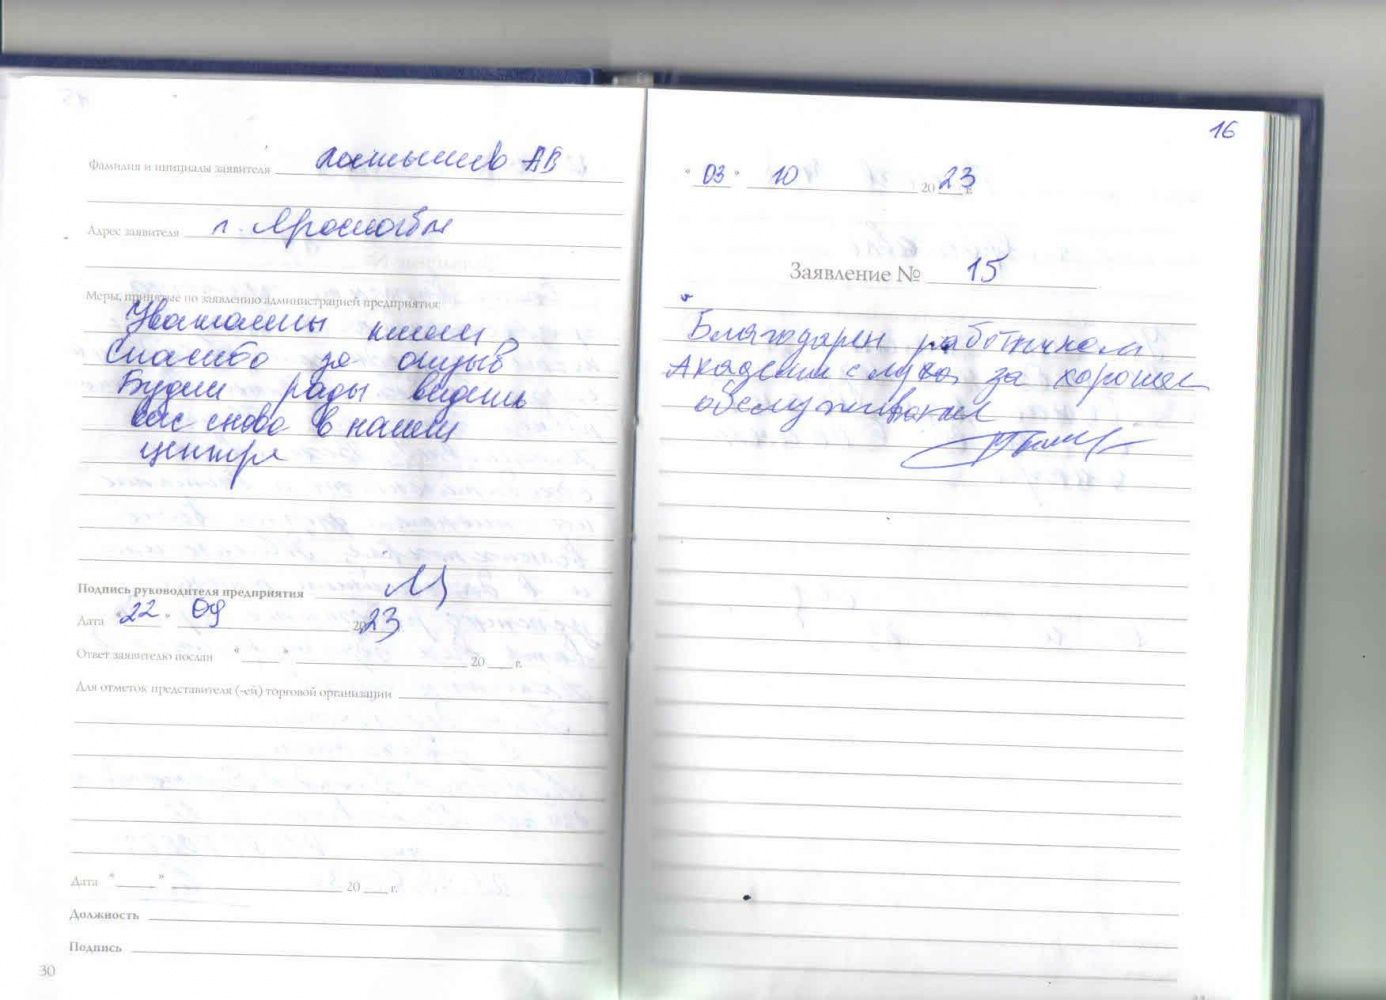 Фамилия и инициалы заявителя Латышев АВ
Адрес заявителя г. Ярославль
Меры, принятые по заявлению администрацией предприятия:
Уважаемый клиент,
Спасибо за отзыв
Будем рады видеть
вас снова в нашем
центре
Подпись руководителя предприятия
Дата "22" 09 2023
Ответ заявителю послан "___" ______ 20 ___ г.
Для отметок представителя (-ей) торговой организации
Дата "___" ______ 20 ___ г.
Должность
Подпись
30
16
"03" 10 2023 г.
Заявление № 15
Благодарен работникам
Академии слуха за хорошее
обслуживание